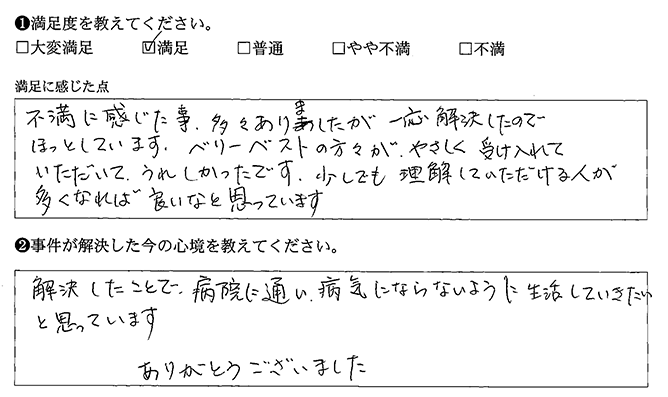 ❶満足度を教えてください。
□大変満足 ☑満足 □普通 □やや不満 □不満
満足に感じた点
不満に感じた事、多々ありましたが 一応解決したので
ほっとしています。ベリーベストの方々が、やさしく受け入れて
いただいて、うれしかったです。少しでも理解していただける人が
多くなれば良いなと思っています
❷事件が解決した今の心境を教えてください。
解決したことで、病院に通い、病気にならないように生活していきたい
と思っています
ありがとうございました